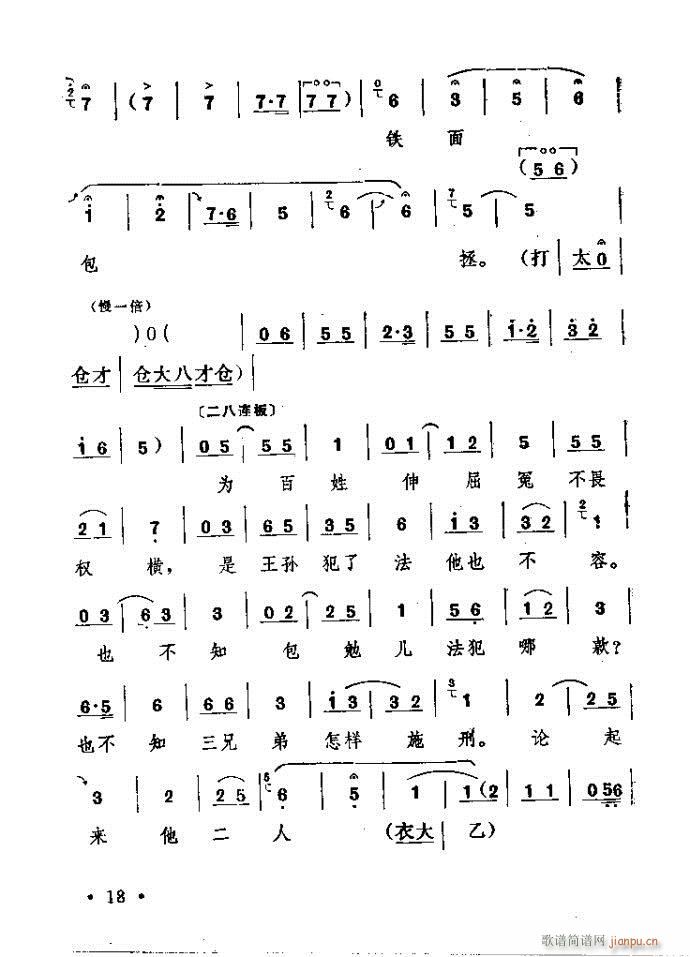 7 | (7 | 7 | 7·7 | 7 7) | 6 | 3 | 5 | 6
铁 面
(5 6)
i | 2 | 7·6 | 5 | 6 | 6 | 5 | 5
包 拯。(打 | 太 0
(慢一倍)
)0( | 0 6 | 5 5 | 2·3 | 5 5 | i·2 | 3 2
仓才 | 仓大八才仓)
〔二八连板〕
i 6 | 5) | 0 5 | 5 5 | 1 | 0 1 | 1 2 | 5 | 5 5
为 百 姓 伸 屈 冤 不畏
2 1 | 7 | 0 3 | 6 5 | 3 5 | 6 | i 3 | 3 2 | 1
权 横, 是 王孙 犯了 法 他也 不 容。
0 3 | 6 3 | 3 | 0 2 | 2 5 | 1 | 5 6 | 1 2 | 3
也 不 知 包 勉 儿 法犯 哪 款?
6·5 | 6 | 6 6 | 3 | i 3 | 3 2 | 1 | 2 | 2 5
也不 知 三兄 弟 怎样 施 刑。 论 起
3 | 2 | 2 5 | 6 | 5 | 1 | 1 (2 | 1 1 | 0 56
来 他 二 人 (衣大 | 乙)
· 18 ·
歌谱简谱网 jianpu.cn